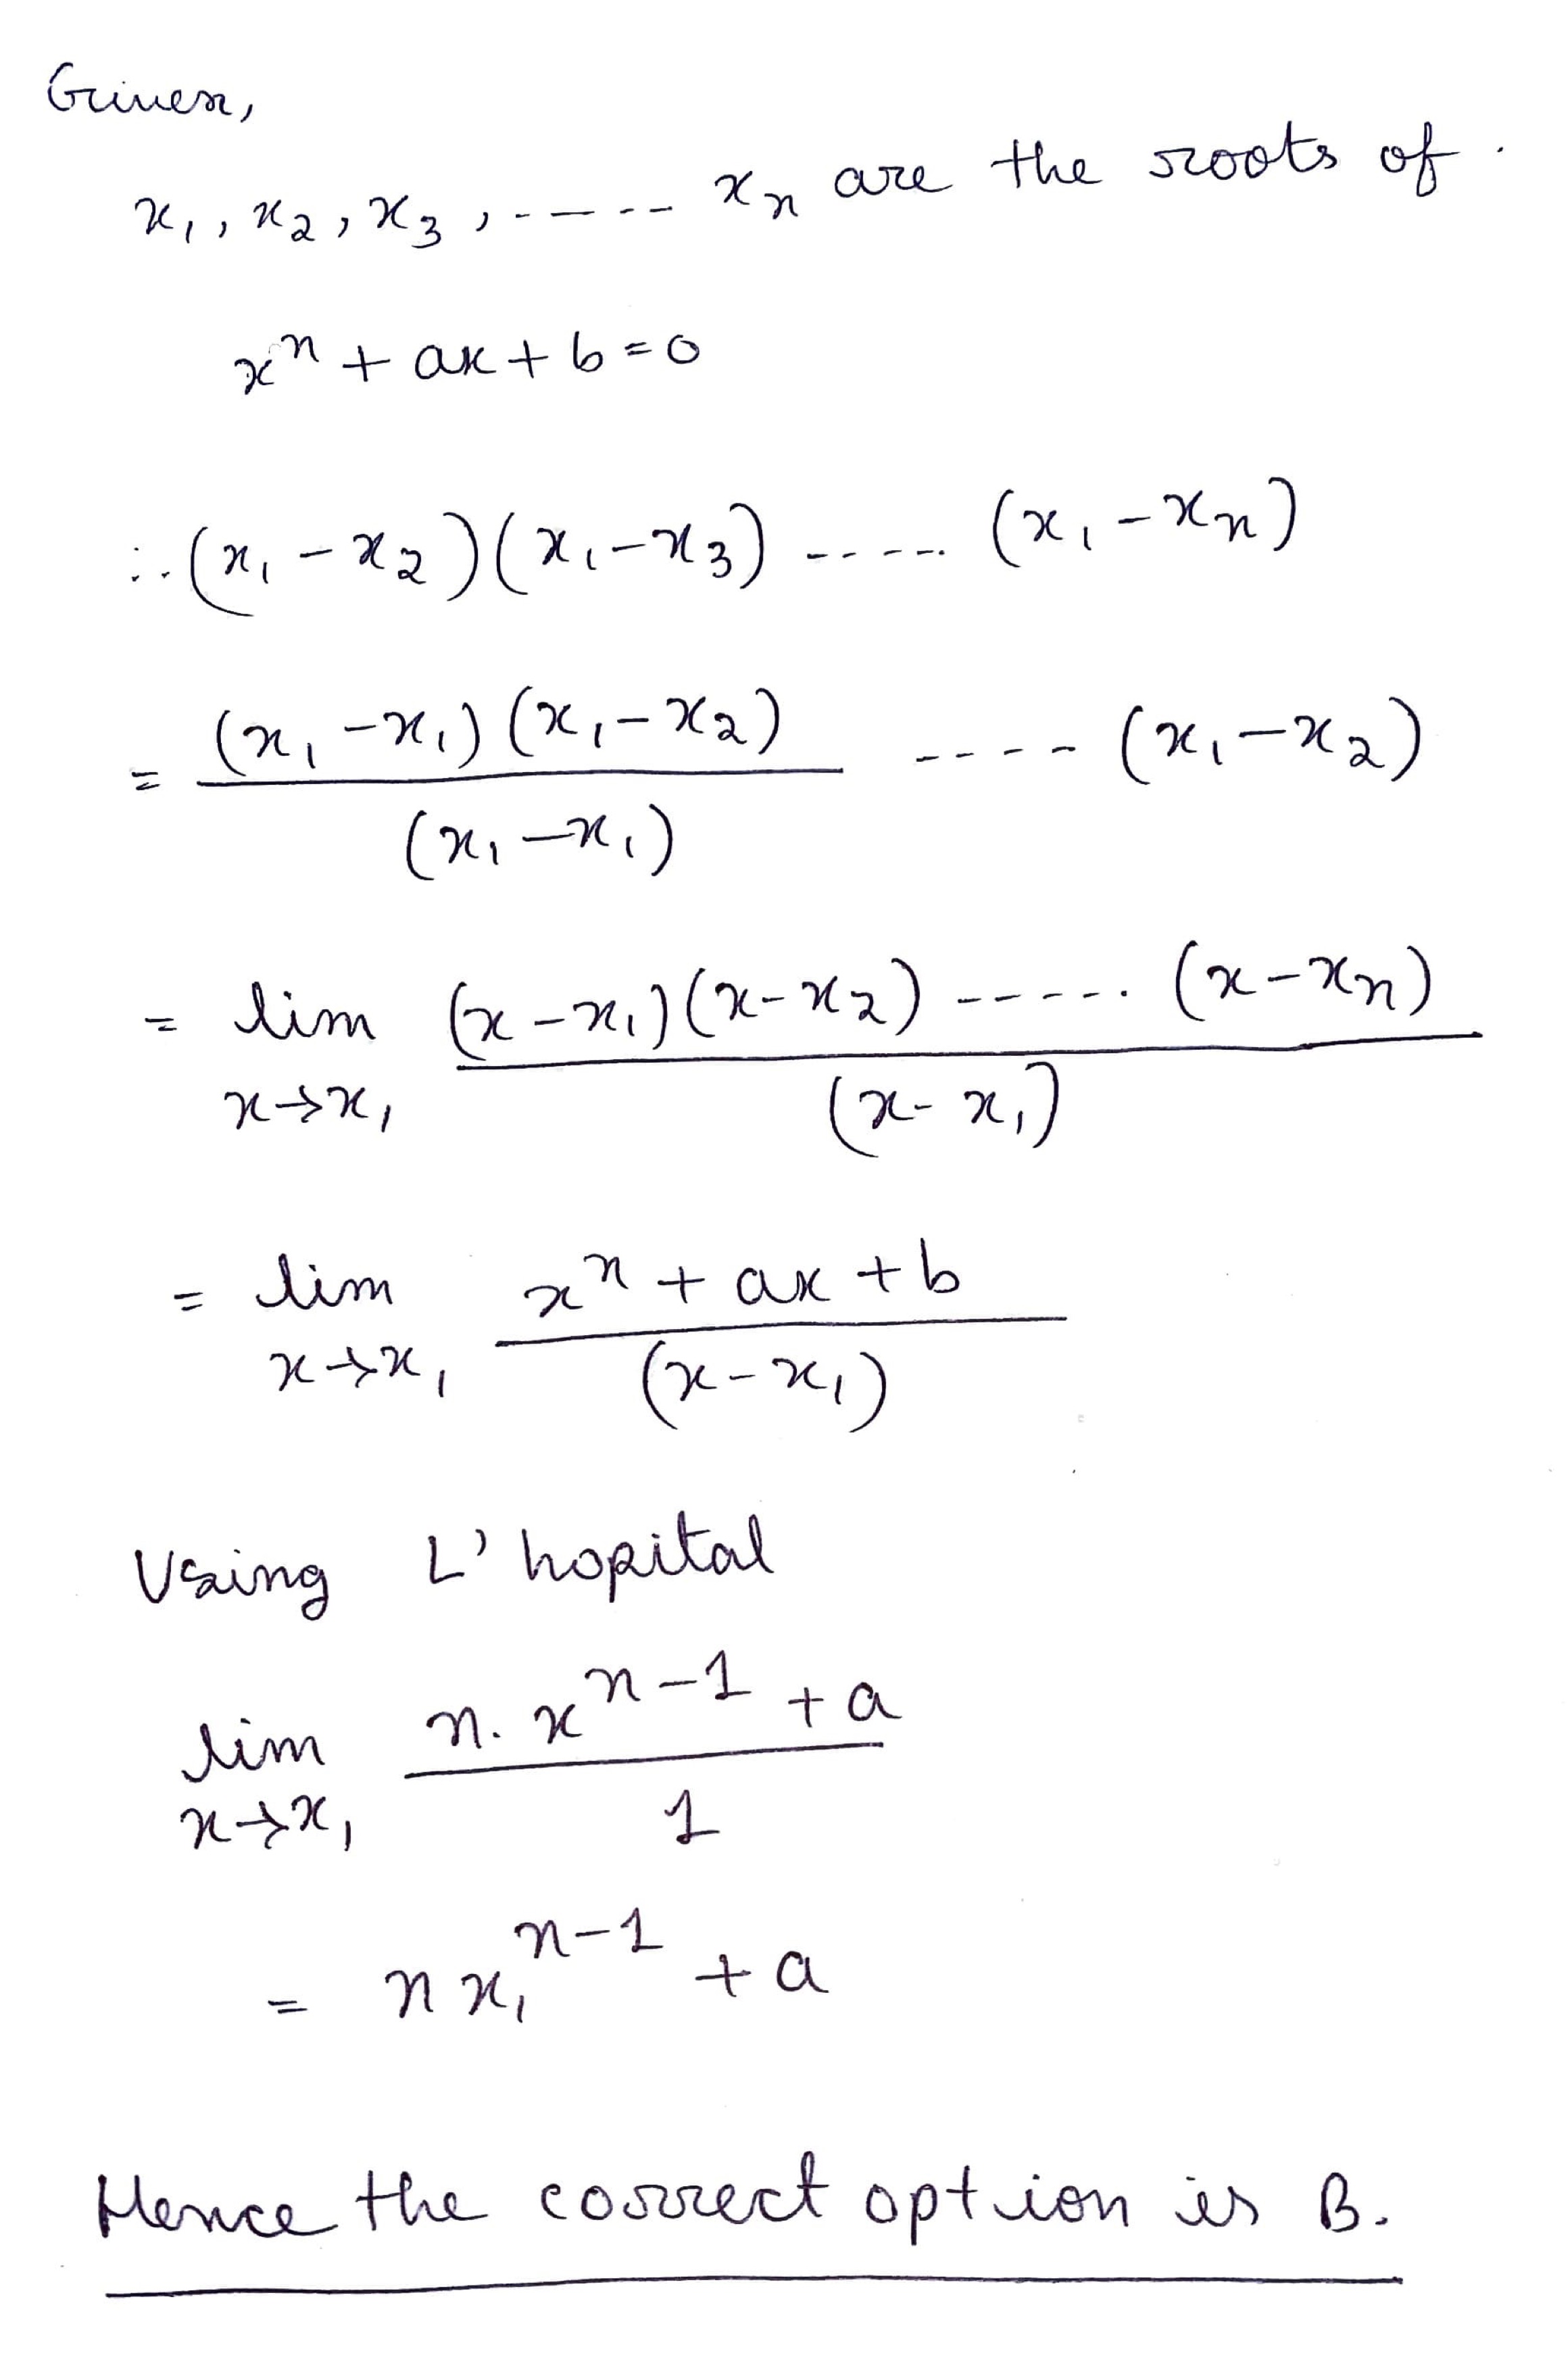 Given,
x₁, x₂, x₃, ------ xₙ are the roots of.
xⁿ + ax + b = 0
∴ (x₁ - x₂)(x₁ - x₃) ----- (x₁ - xₙ)
= (x₁ - x₁)(x₁ - x₂) ---- (x₁ - x₂)
(x₁ - x₁)
= lim (x - x₁)(x - x₂) ------ (x - xₙ)
x→x₁ (x - x₁)
= lim xⁿ + ax + b
x→x₁ (x - x₁)
Using L'hopital
lim n. xⁿ⁻¹ + a
x→x₁ 1
= n x₁ⁿ⁻¹ + a
Hence the correct option is B.